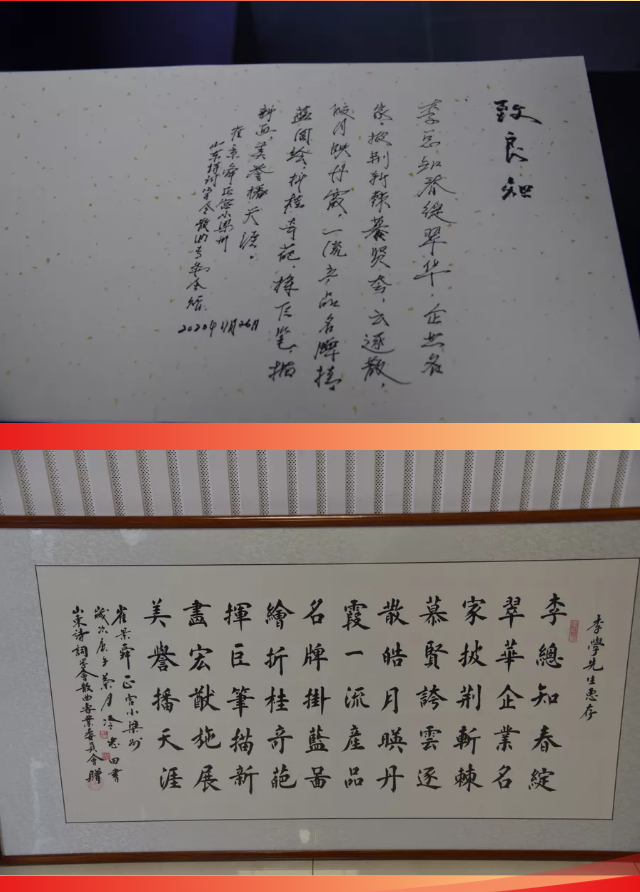 致良知
李总知春绽翠华，企业名
家，披荆斩棘慕贤夸，云逐散，
皓月映丹霞，一流产品名牌挂，
蓝图绘折桂奇葩，挥巨笔，描
新画，美誉播天涯。
崔景舜正宫小梁州
山东诗词学会散曲专委会赠
2020年11月26日
李學先生惠存
李總知春綻
翠華企業名
家披荆斬棘
慕賢誇雲逐
散皓月暎丹
霞一流產品
名牌掛藍啚
繪折桂奇葩
揮巨筆描新
畫宏猷施展
美譽播天涯
崔景舜正宫小梁州
歲次庚子菊月冷忠田書
山東诗詞学會散曲專業委員會贈